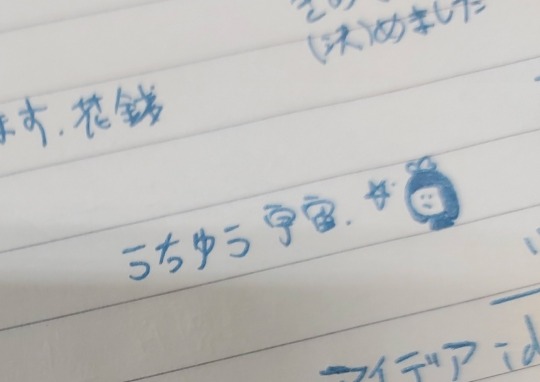 (決)めました
ます、花銭
うちゅう 宇宙.
アイデア id